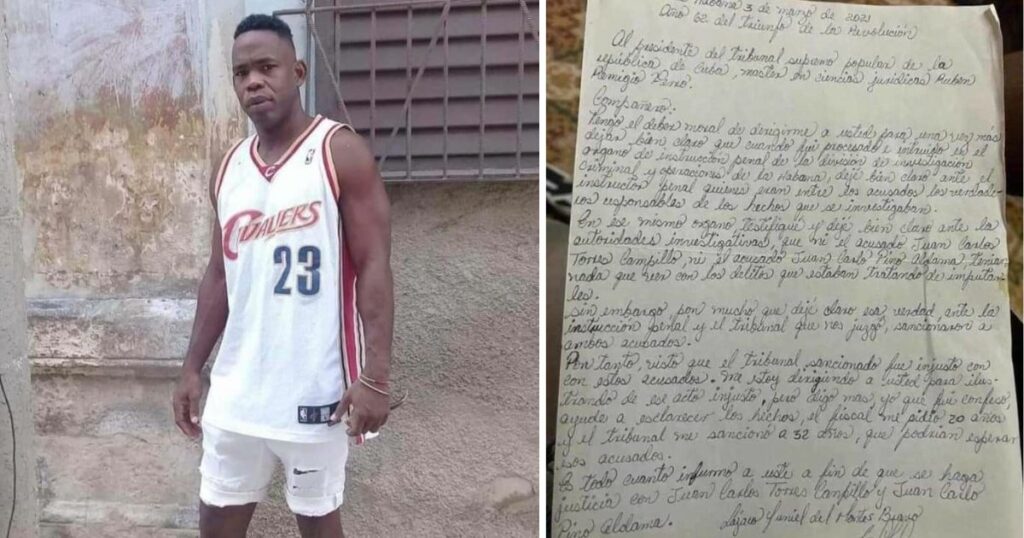 CAVALIERS
23
Habana 3 de marzo de 2021
Año 62 del triunfo de la Revolución
Al presidente del tribunal supremo popular de la
república de Cuba, master en ciencias jurídicas Ruben
Remigio Ferro.
Compañero.
Tengo el deber moral de derigirme a usted para una vez más
dejar bien claro que cuando fui procesado e intruido en el
órgano de instrucción penal de la división de investigación
Criminal y operaciones de la Habana, dejé bien claro ante el
instructor penal quienes eran entre los acusados los verdade-
ros responsables de los hechos que se investigaban.
En ese mismo organo, testifiqué y dejé bien claro ante la
autoridades investigativas, que ni el acusado Juan Carlos
Torres Campillo, ni el acusado Juan Carlo Pino Aldama tenian
nada que ver con los delitos que estaban tratando de imputar
les.
sin embargo, por mucho que dejé claro esa verdad, ante la
instrucción penal y el tribunal que nos juzgó, sancionaron a
ambos acubados.
Por tanto, visto que el tribunal sancionado fue injusto con
con estos acusados. Me estoy dirigiendo a usted para ilus-
trando de ese acto injusto, pero digo mas, yo que fui confeso,
ayude a esclarecer los hechos, el fiscal me pidio 20 años
y el tribunal me sancionó a 32 años, que podrian esperar
esos acusados.
Es todo cuanto informo a uste a fin de que se haga
justicia con Juan Carlos Torres Campillo y Juan Carlo
Pino Aldama. Lázaro Yuniel del Montes Bravo